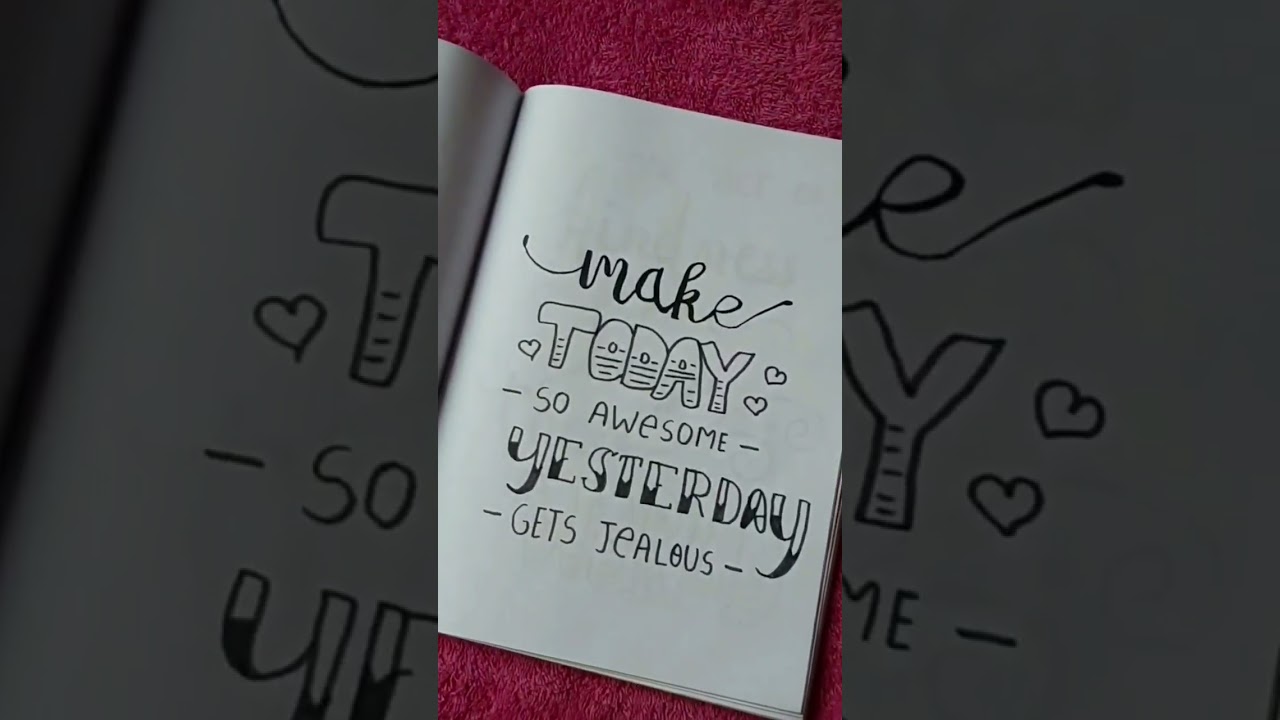 make
TODAY
- SO AWeSOME -
YESTERDAY
- GETS JeALOUS -